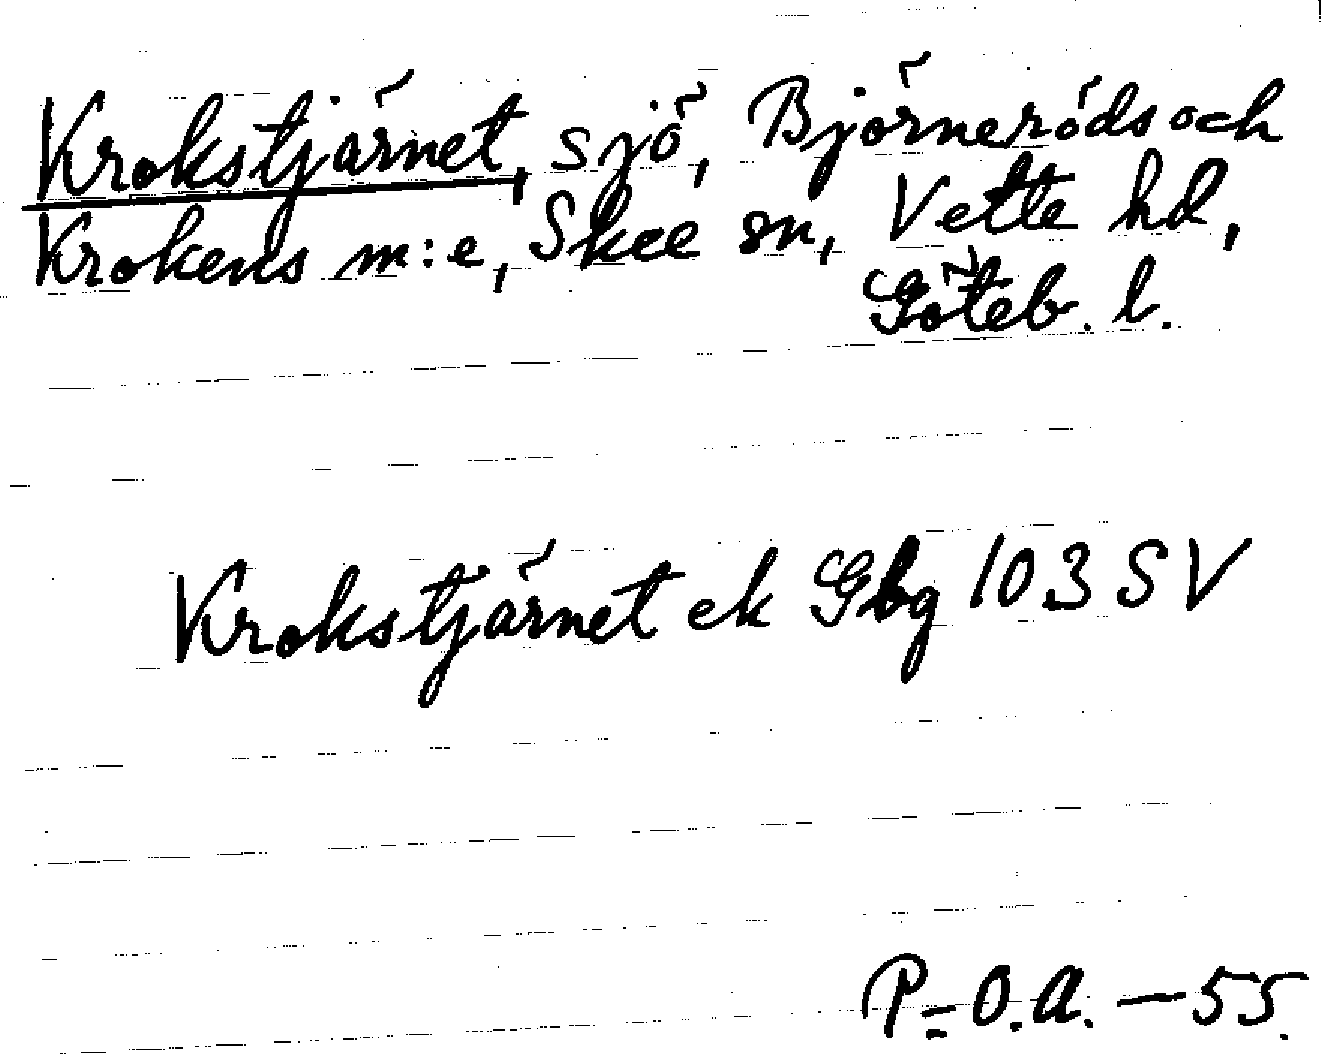 Krokstjärnet, sjö, Björneröds och
Krokens m:e, Skee sn, Vette hd,
Göteb. l.
Krokstjärnet ek Gbg 103 SV
P-O.A. — 55.